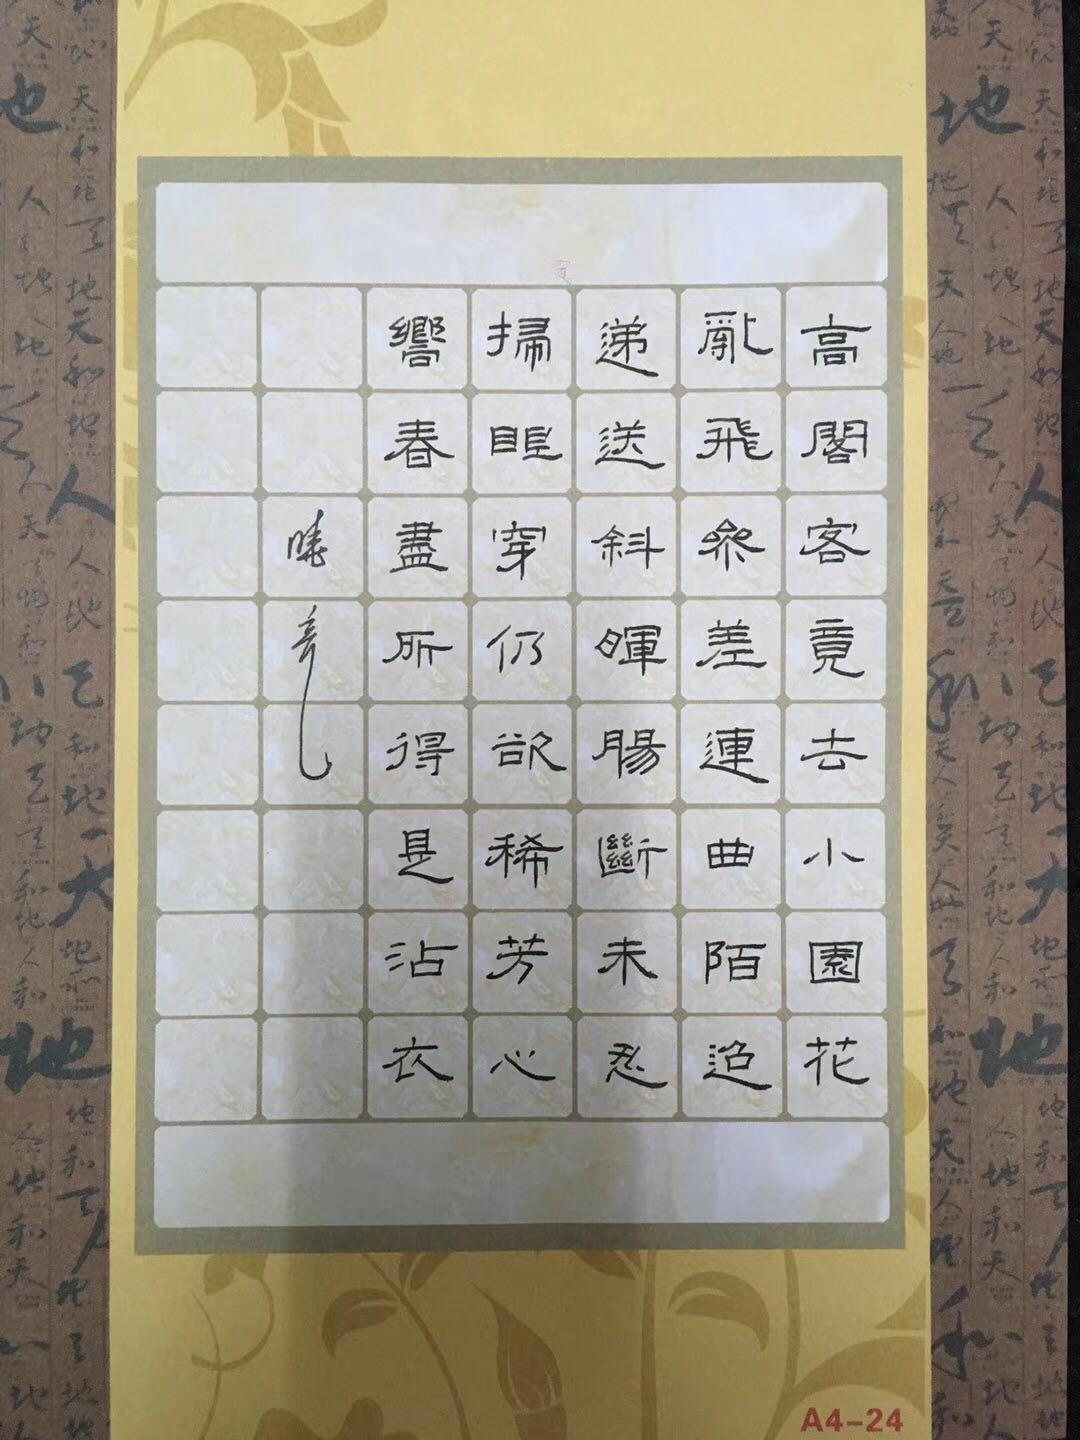 高閣客竟去小園花
亂飛參差連曲陌迢
遞送斜暉腸斷未忍
掃眼穿仍欲稀芳心
嚮春盡所得是沾衣
A4-24